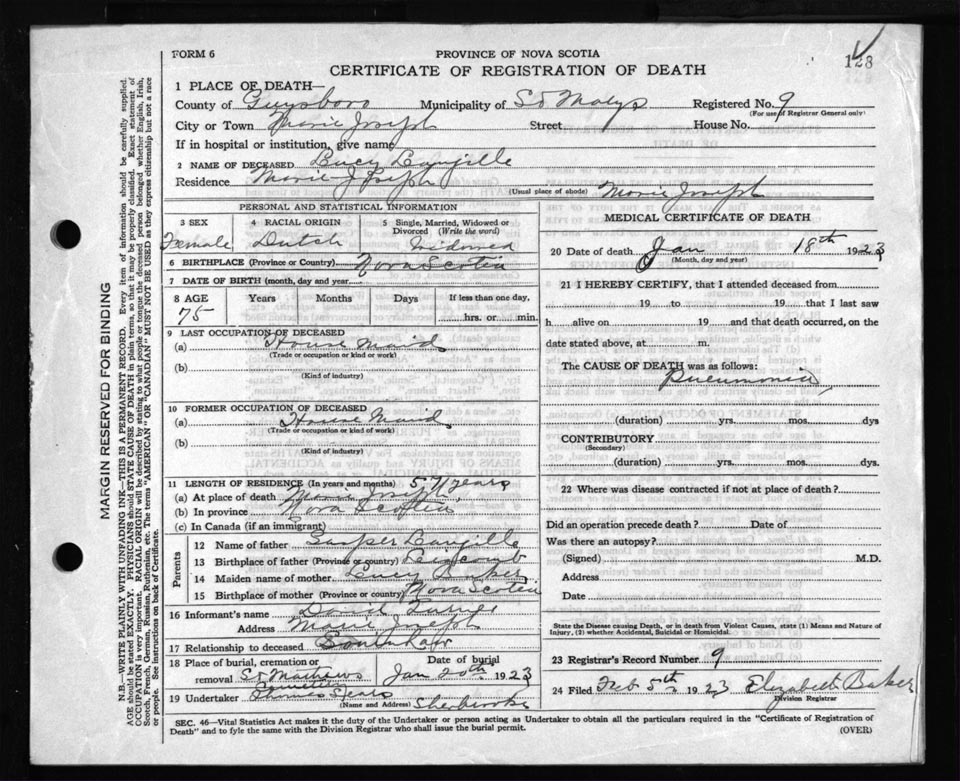 FORM 6
PROVINCE OF NOVA SCOTIA
CERTIFICATE OF REGISTRATION OF DEATH
123
1 PLACE OF DEATH—
County of Guysboro Municipality of St Marys Registered No. 9
(For use of Registrar General only)
City or Town Marie Joseph Street House No.
If in hospital or institution, give name
2 NAME OF DECEASED Lucy Langille
Residence Marie Joseph (Usual place of abode) Marie Joseph
PERSONAL AND STATISTICAL INFORMATION
3 SEX 4 RACIAL ORIGIN 5 Single, Married, Widowed or Divorced (Write the word)
Female Dutch Widowed
6 BIRTHPLACE (Province or Country) Nova Scotia
7 DATE OF BIRTH (month, day and year)
8 AGE Years Months Days If less than one day,
75 hrs. or min.
9 LAST OCCUPATION OF DECEASED
(a) House Maid
(Trade or occupation or kind or work)
(b)
(Kind of industry)
10 FORMER OCCUPATION OF DECEASED
(a) House Maid
(Trade or occupation or kind of work)
(b)
(Kind of industry)
11 LENGTH OF RESIDENCE (In years and months) years
(a) At place of death Marie Joseph
(b) In province Nova Scotia
(c) In Canada (if an immigrant)
Parents
12 Name of father Casper Langille
13 Birthplace of father (Province or country)
14 Maiden name of mother Lucy
15 Birthplace of mother (Province or country) Nova Scotia
16 Informant's name David
Address Marie Joseph
17 Relationship to deceased Son in Law
18 Place of burial, cremation or removal St Mathews Date of burial Jan 20th 1923
19 Undertaker Sherbrooke
(Name and Address)
MEDICAL CERTIFICATE OF DEATH
20 Date of death Jan 18th 1923
(Month, day and year)
21 I HEREBY CERTIFY, that I attended deceased from
19 to 19 that I last saw
h alive on 19 and that death occurred, on
date stated above, at m.
The CAUSE OF DEATH was as follows:
Pneumonia
(duration) yrs. mos. dys
CONTRIBUTORY
(Secondary)
(duration) yrs. mos. dys.
22 Where was disease contracted if not at place of death?
Did an operation precede death? Date of
Was there an autopsy?
(Signed) M.D.
Address
Date
State the Disease causing Death, or in death from Violent Causes, state (1) Means and Nature of
Injury, (2) whether Accidental, Suicidal or Homicidal.
23 Registrar's Record Number 9
24 Filed Feb 5th 1923 Elizabeth Baker
Division Registrar
SEC. 46—Vital Statistics Act makes it the duty of the Undertaker or person acting as Undertaker to obtain all the particulars required in the "Certificate of Registration of
Death" and to fyle the same with the Division Registrar who shall issue the burial permit.
(OVER)
MARGIN RESERVED FOR BINDING
N.B.—WRITE PLAINLY WITH UNFADING INK—THIS IS A PERMANENT RECORD. Every item of information should be carefully supplied.
AGE should be stated EXACTLY. PHYSICIANS should STATE CAUSE OF DEATH in plain terms, so that it may be properly classified. Exact statement of
OCCUPATION is very important. RACIAL ORIGIN will be described by stating to what people or tongue the deceased person belonged whether English, Irish,
Scotch, French, German, Russian, Ruthenian, etc. The terms "AMERICAN" OR "CANADIAN" MUST NOT BE USED as they express citizenship but not a race
or people. See instructions on back of Certificate.